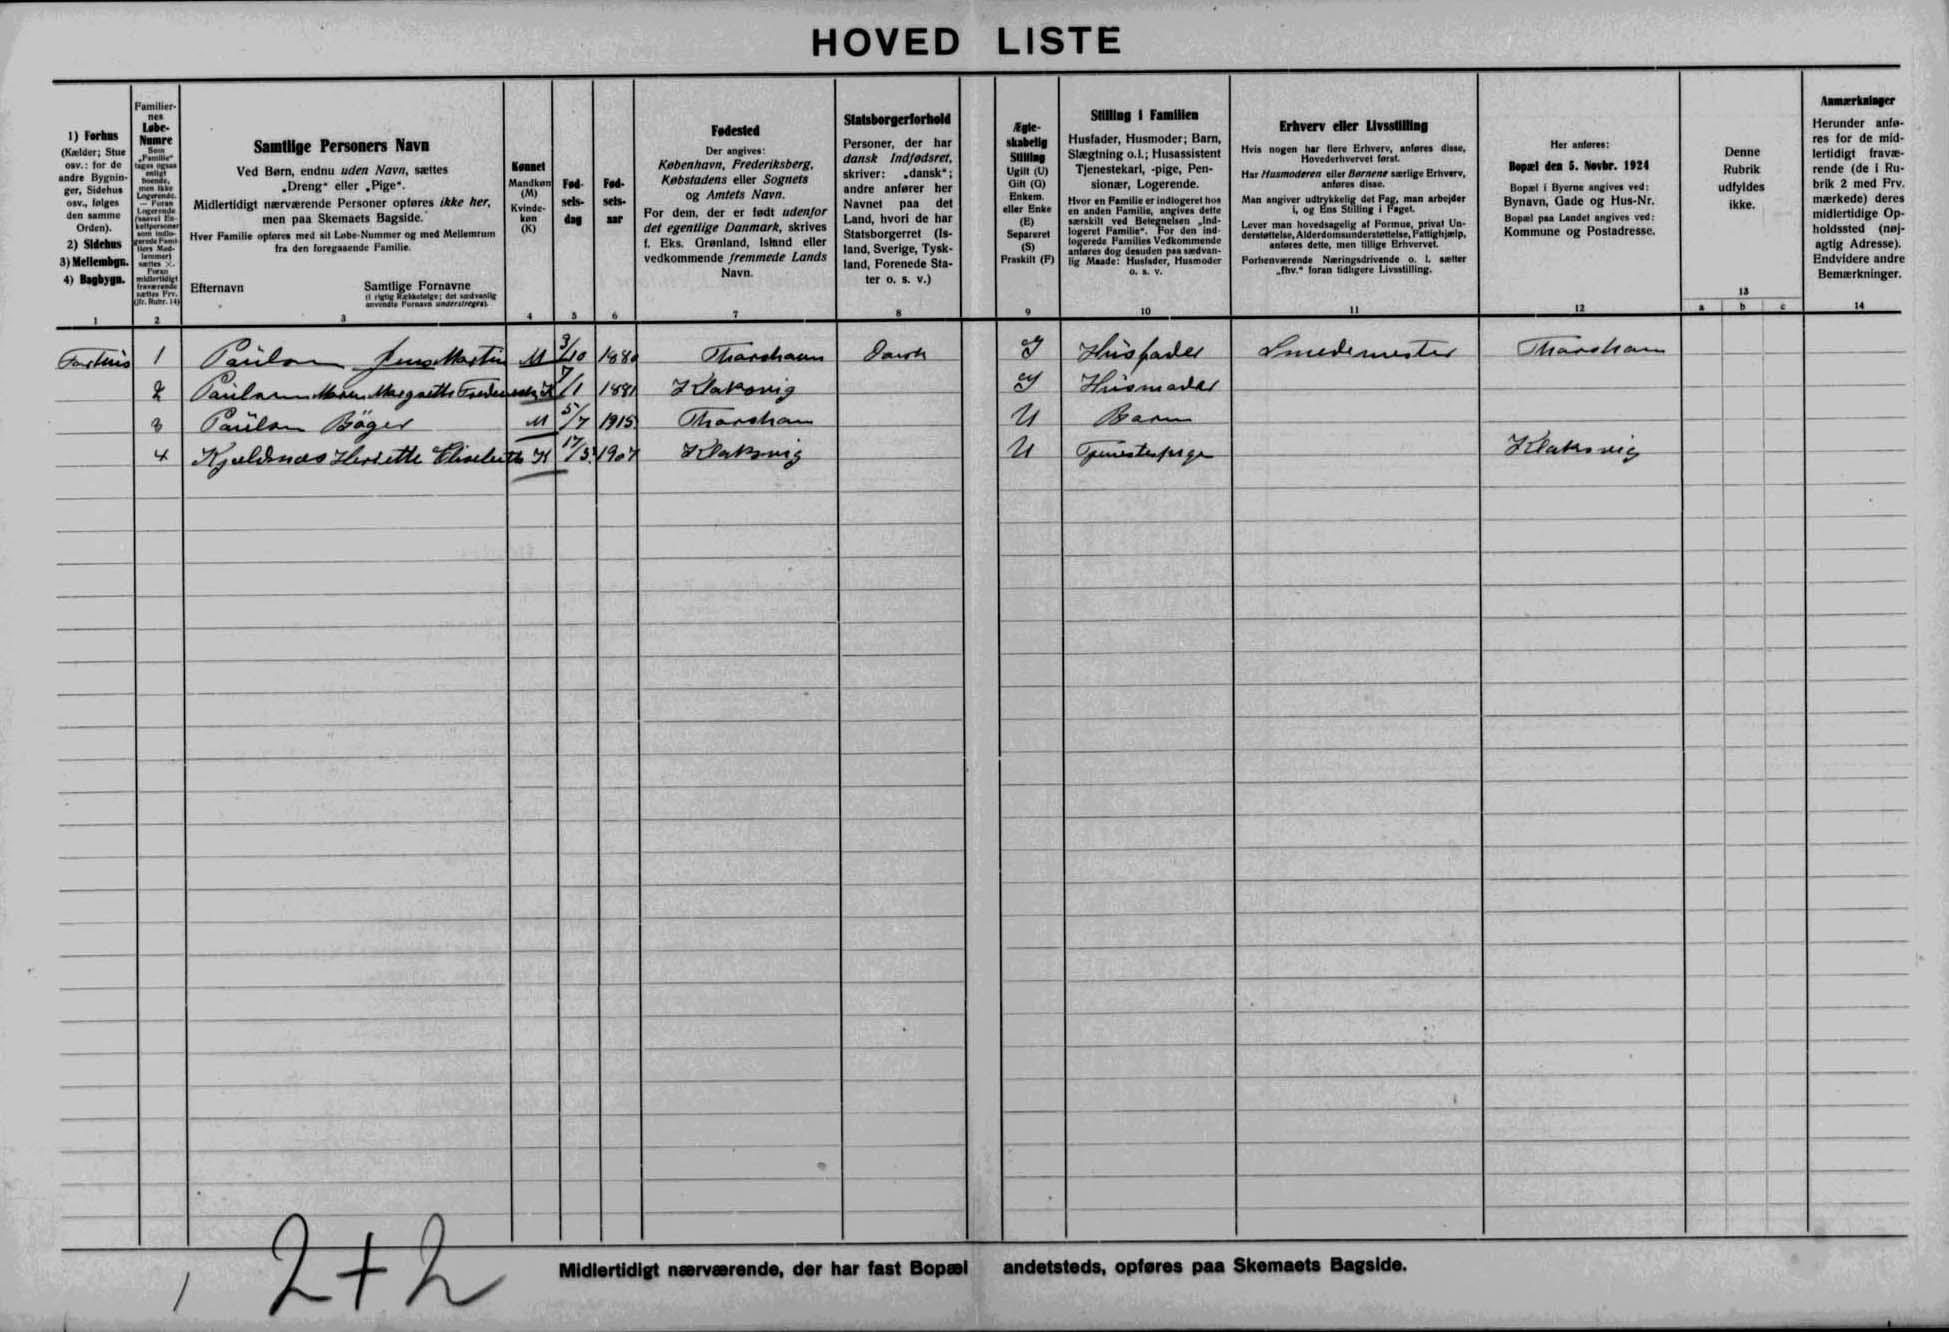 HOVED LISTE
1) Forhus
(Kælder; Stue
osv.: for de
andre Bygnin-
ger, Sidehus
osv., følges
den samme
Orden).
2) Sidehus
3) Mellembgn.
4) Bagbygn.
1
Familier-
nes
Løbe-
Numre
Som
„Familie“
tages ogsaa
enligt
boende,
men ikke
Logerende.
— Foran
Logerende
(saavel En-
keltpersoner
som indlo-
gerede Fami-
liers Med-
lemmer)
sættes ×.
Foran
midlertidigt
fraværende
sættes Frv.
(jfr. Rubr. 14)
2
Samtlige Personers Navn
Ved Børn, endnu uden Navn, sættes
„Dreng“ eller „Pige“.
Midlertidigt nærværende Personer opføres ikke her,
men paa Skemaets Bagside.
Hver Familie opføres med sit Løbe-Nummer og med Mellemrum
fra den foregaaende Familie.
Efternavn
Samtlige Fornavne
(i rigtig Rækkefølge; det sædvanlig
anvendte Fornavn understreges).
3
Kønnet
Mandkøn
(M)
Kvinde-
køn
(K)
4
Fød-
sels-
dag
5
Fød-
sels-
aar
6
Fødested
Der angives:
København, Frederiksberg,
Købstadens eller Sognets
og Amtets Navn.
For dem, der er født udenfor
det egentlige Danmark, skrives
f. Eks. Grønland, Island eller
vedkommende fremmede Lands
Navn.
7
Statsborgerforhold
Personer, der har
dansk Indfødsret,
skriver: „dansk“;
andre anfører her
Navnet paa det
Land, hvori de har
Statsborgerret (Is-
land, Sverige, Tysk-
land, Forenede Sta-
ter o. s. v.)
8
Ægte-
skabelig
Stilling
Ugift (U)
Gift (G)
Enkem.
eller Enke
(E)
Separeret
(S)
Fraskilt (F)
9
Stilling i Familien
Husfader, Husmoder; Barn,
Slægtning o.l.; Husassistent
Tjenestekarl, -pige, Pen-
sionær, Logerende.
Hvor en Familie er indlogeret hos
en anden Familie, angives dette
særskilt ved Betegnelsen „Ind-
logeret Familie“. For den ind-
logerede Families Vedkommende
anføres dog desuden paa sædvan-
lig Maade: Husfader, Husmoder
o. s. v.
10
Erhverv eller Livsstilling
Hvis nogen har flere Erhverv, anføres disse,
Hovederhvervet først.
Har Husmoderen eller Børnene særlige Erhverv,
anføres disse.
Man angiver udtrykkelig det Fag, man arbejder
i, og Ens Stilling i Faget.
Lever man hovedsagelig af Formue, privat Un-
derstøttelse, Alderdomsunderstøttelse, Fattighjælp,
anføres dette, men tillige Erhvervet.
Forhenværende Næringsdrivende o. l. sætter
„fhv.“ foran tidligere Livsstilling.
11
Her anføres:
Bopæl den 5. Novbr. 1924
Bopæl i Byerne angives ved:
Bynavn, Gade og Hus-Nr.
Bopæl paa Landet angives ved:
Kommune og Postadresse.
12
Denne
Rubrik
udfyldes
ikke.
13
a b c
Anmærkninger
Herunder anfø-
res for de mid-
lertidigt fravæ-
rende (de i Ru-
brik 2 med Frv.
mærkede) deres
midlertidige Op-
holdssted (nøj-
agtig Adresse).
Endvidere andre
Bemærkninger.
14
Forhus 1 Paulson Jens Martin M 3/10 1880 Thorshavn Dansk G Husfader Smedemester Thorshavn
2 Paulson Maren Margrethe K 7/1 1881 Klaksvig G Husmoder
3 Paulson Bøger M 5/7 1915 Thorshavn U Barn
4 Kjældnæs Henriette Elisabeth K 17/3 1907 Klaksvig U Tjenestepige Klaksvig
2+2
Midlertidigt nærværende, der har fast Bopæl andetsteds, opføres paa Skemaets Bagside.